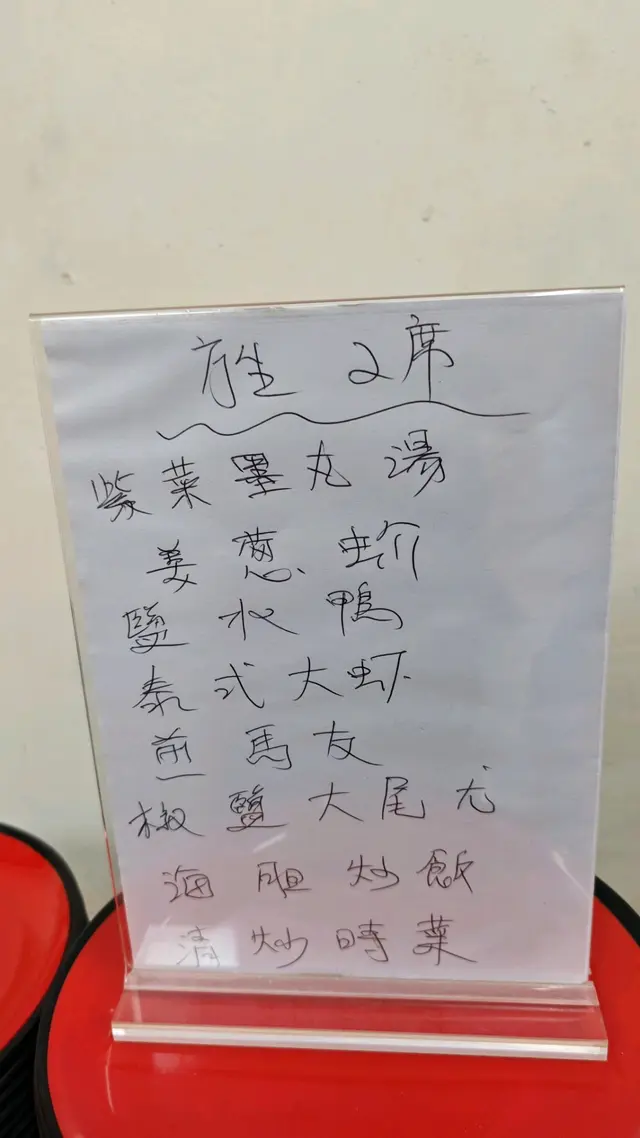 2席
紫菜墨丸湯
姜葱蚧
鹽水鴨
泰式大虾
煎馬友
椒鹽大尾尤
海胆炒飯
清炒時菜